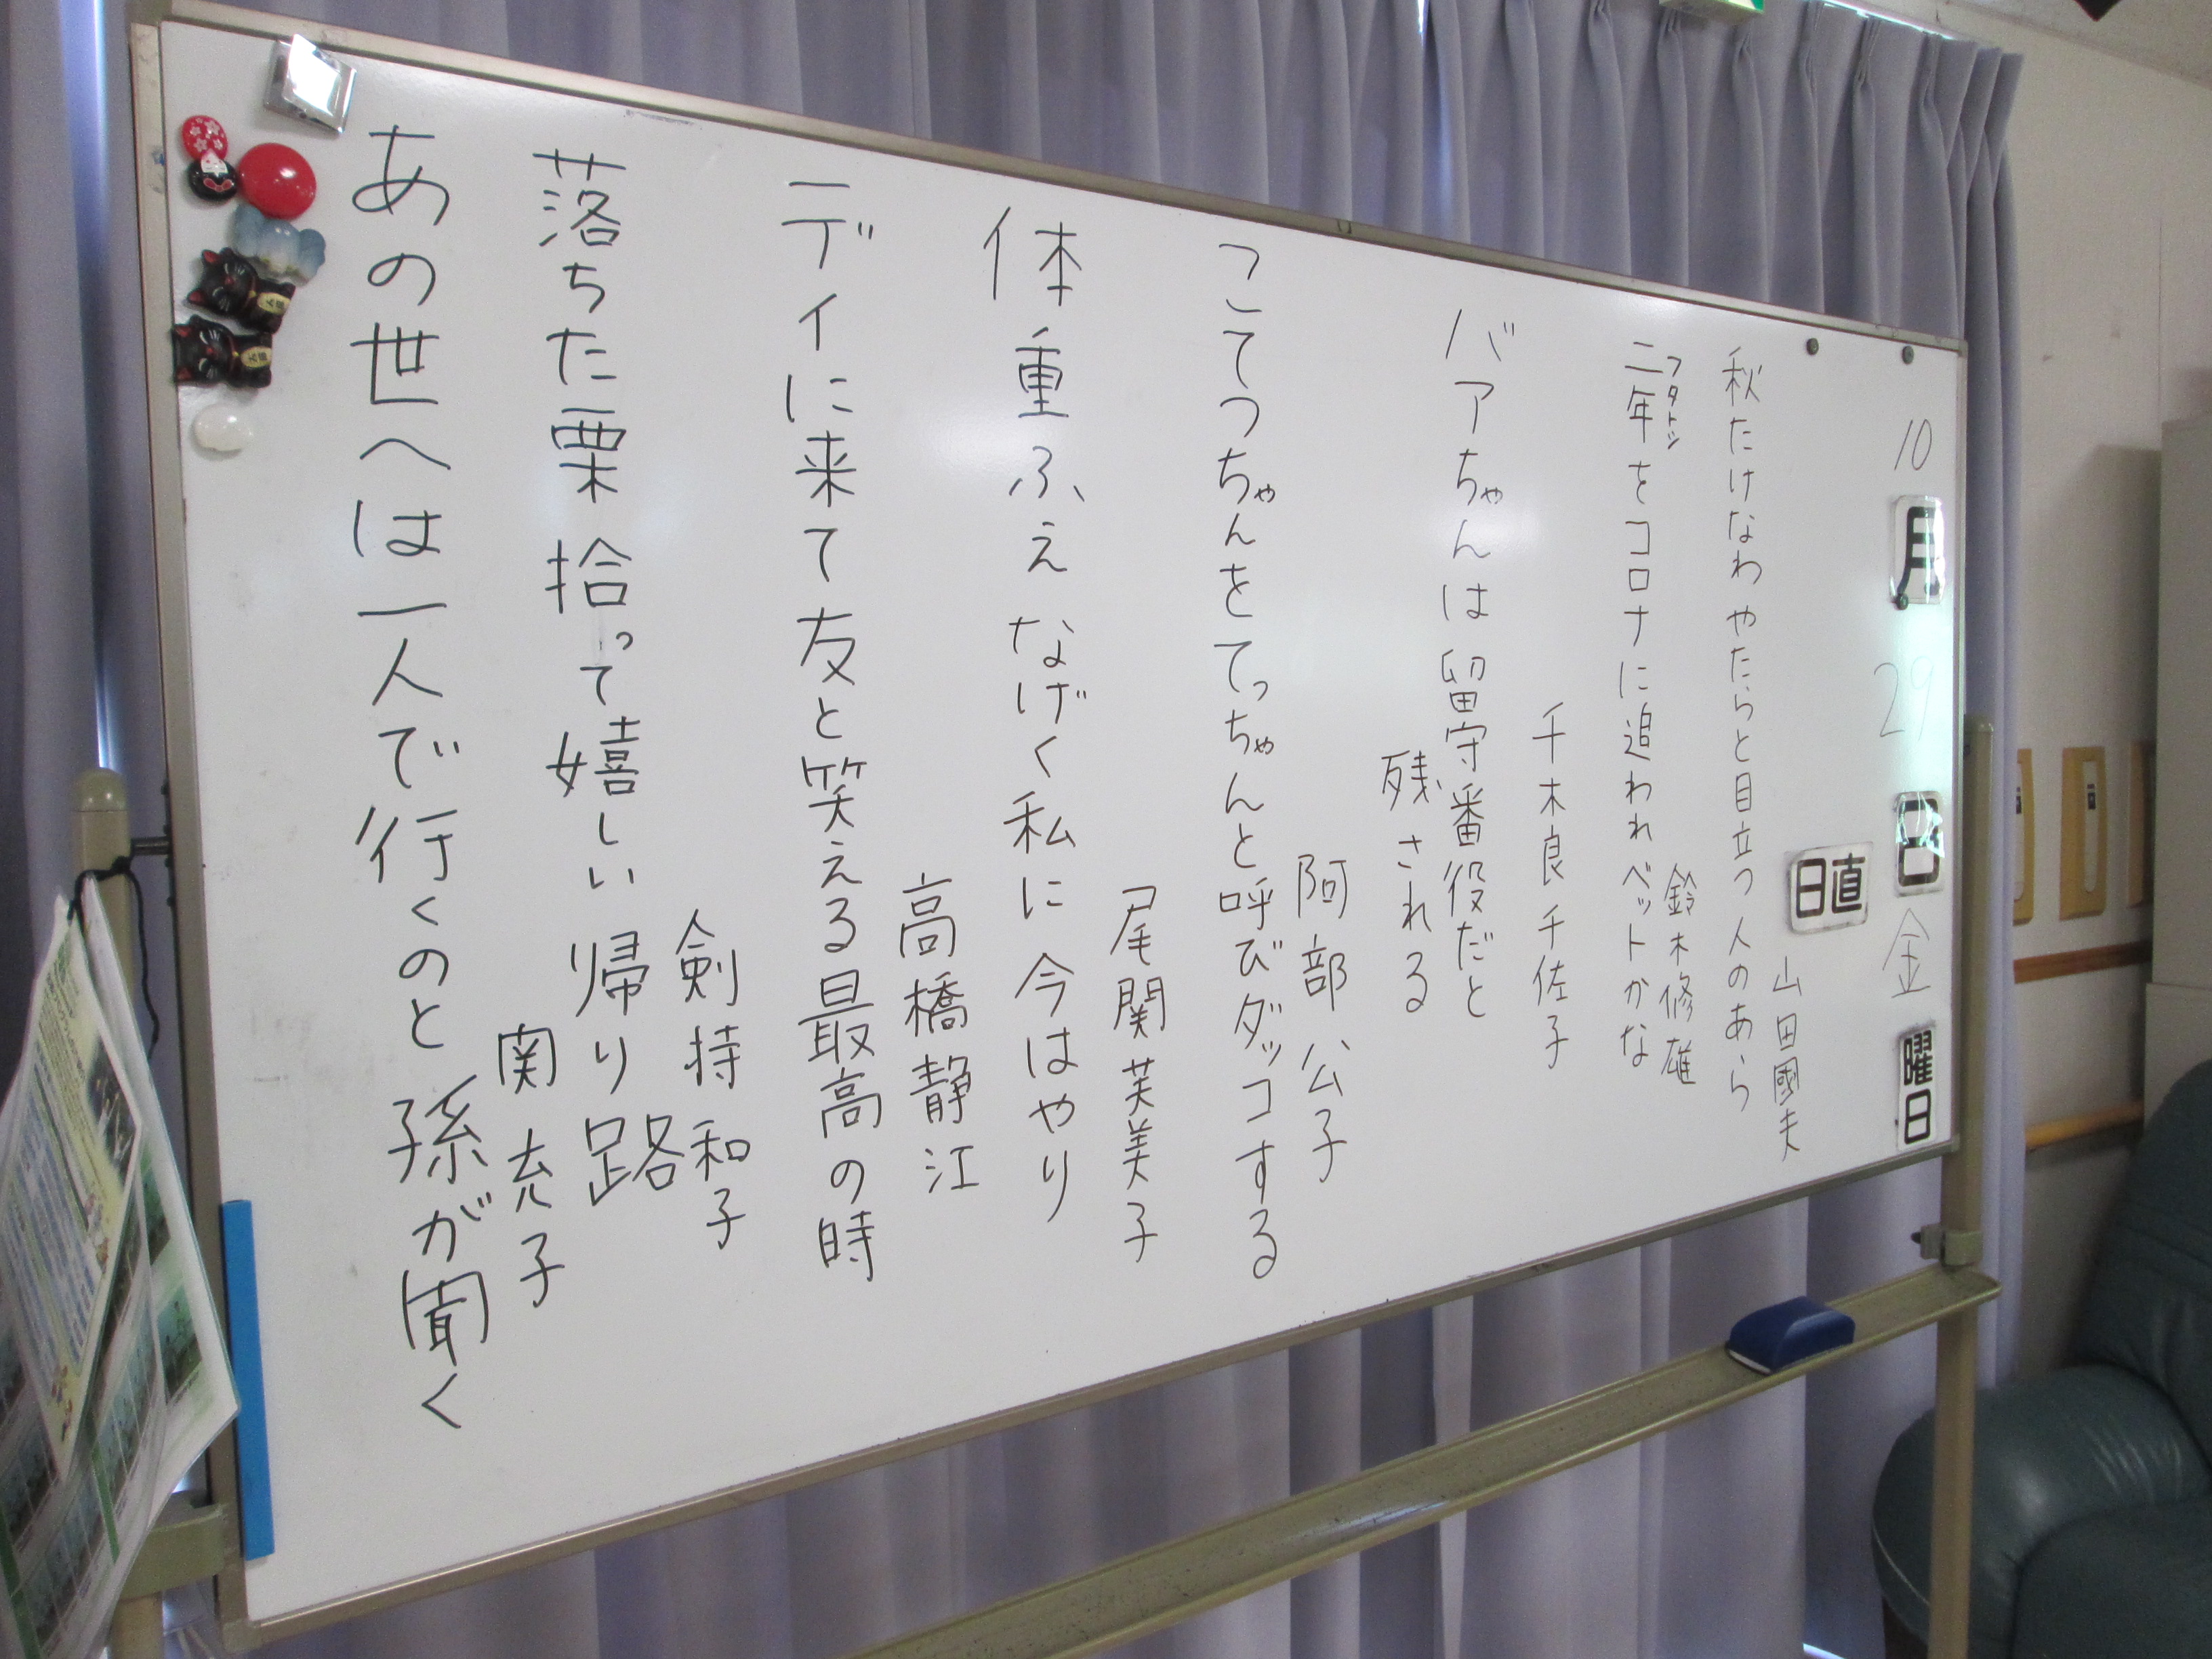 10月29日金曜日
日直
山田國夫
秋たけなわやたらと目立つ人のあら
鈴木修雄
二年をコロナに追われベットかな
フタトシ
千木良千佐子
バアちゃんは留守番役だと
残される
阿部公子
こてつちゃんをてっちゃんと呼びダッコする
尾関芙美子
体重ふえなげく私に今はやり
高橋静江
デイに来て友と笑える最高の時
剣持和子
落ちた栗拾って嬉しい帰り路
関充子
あの世へは一人で行くのと孫が聞く